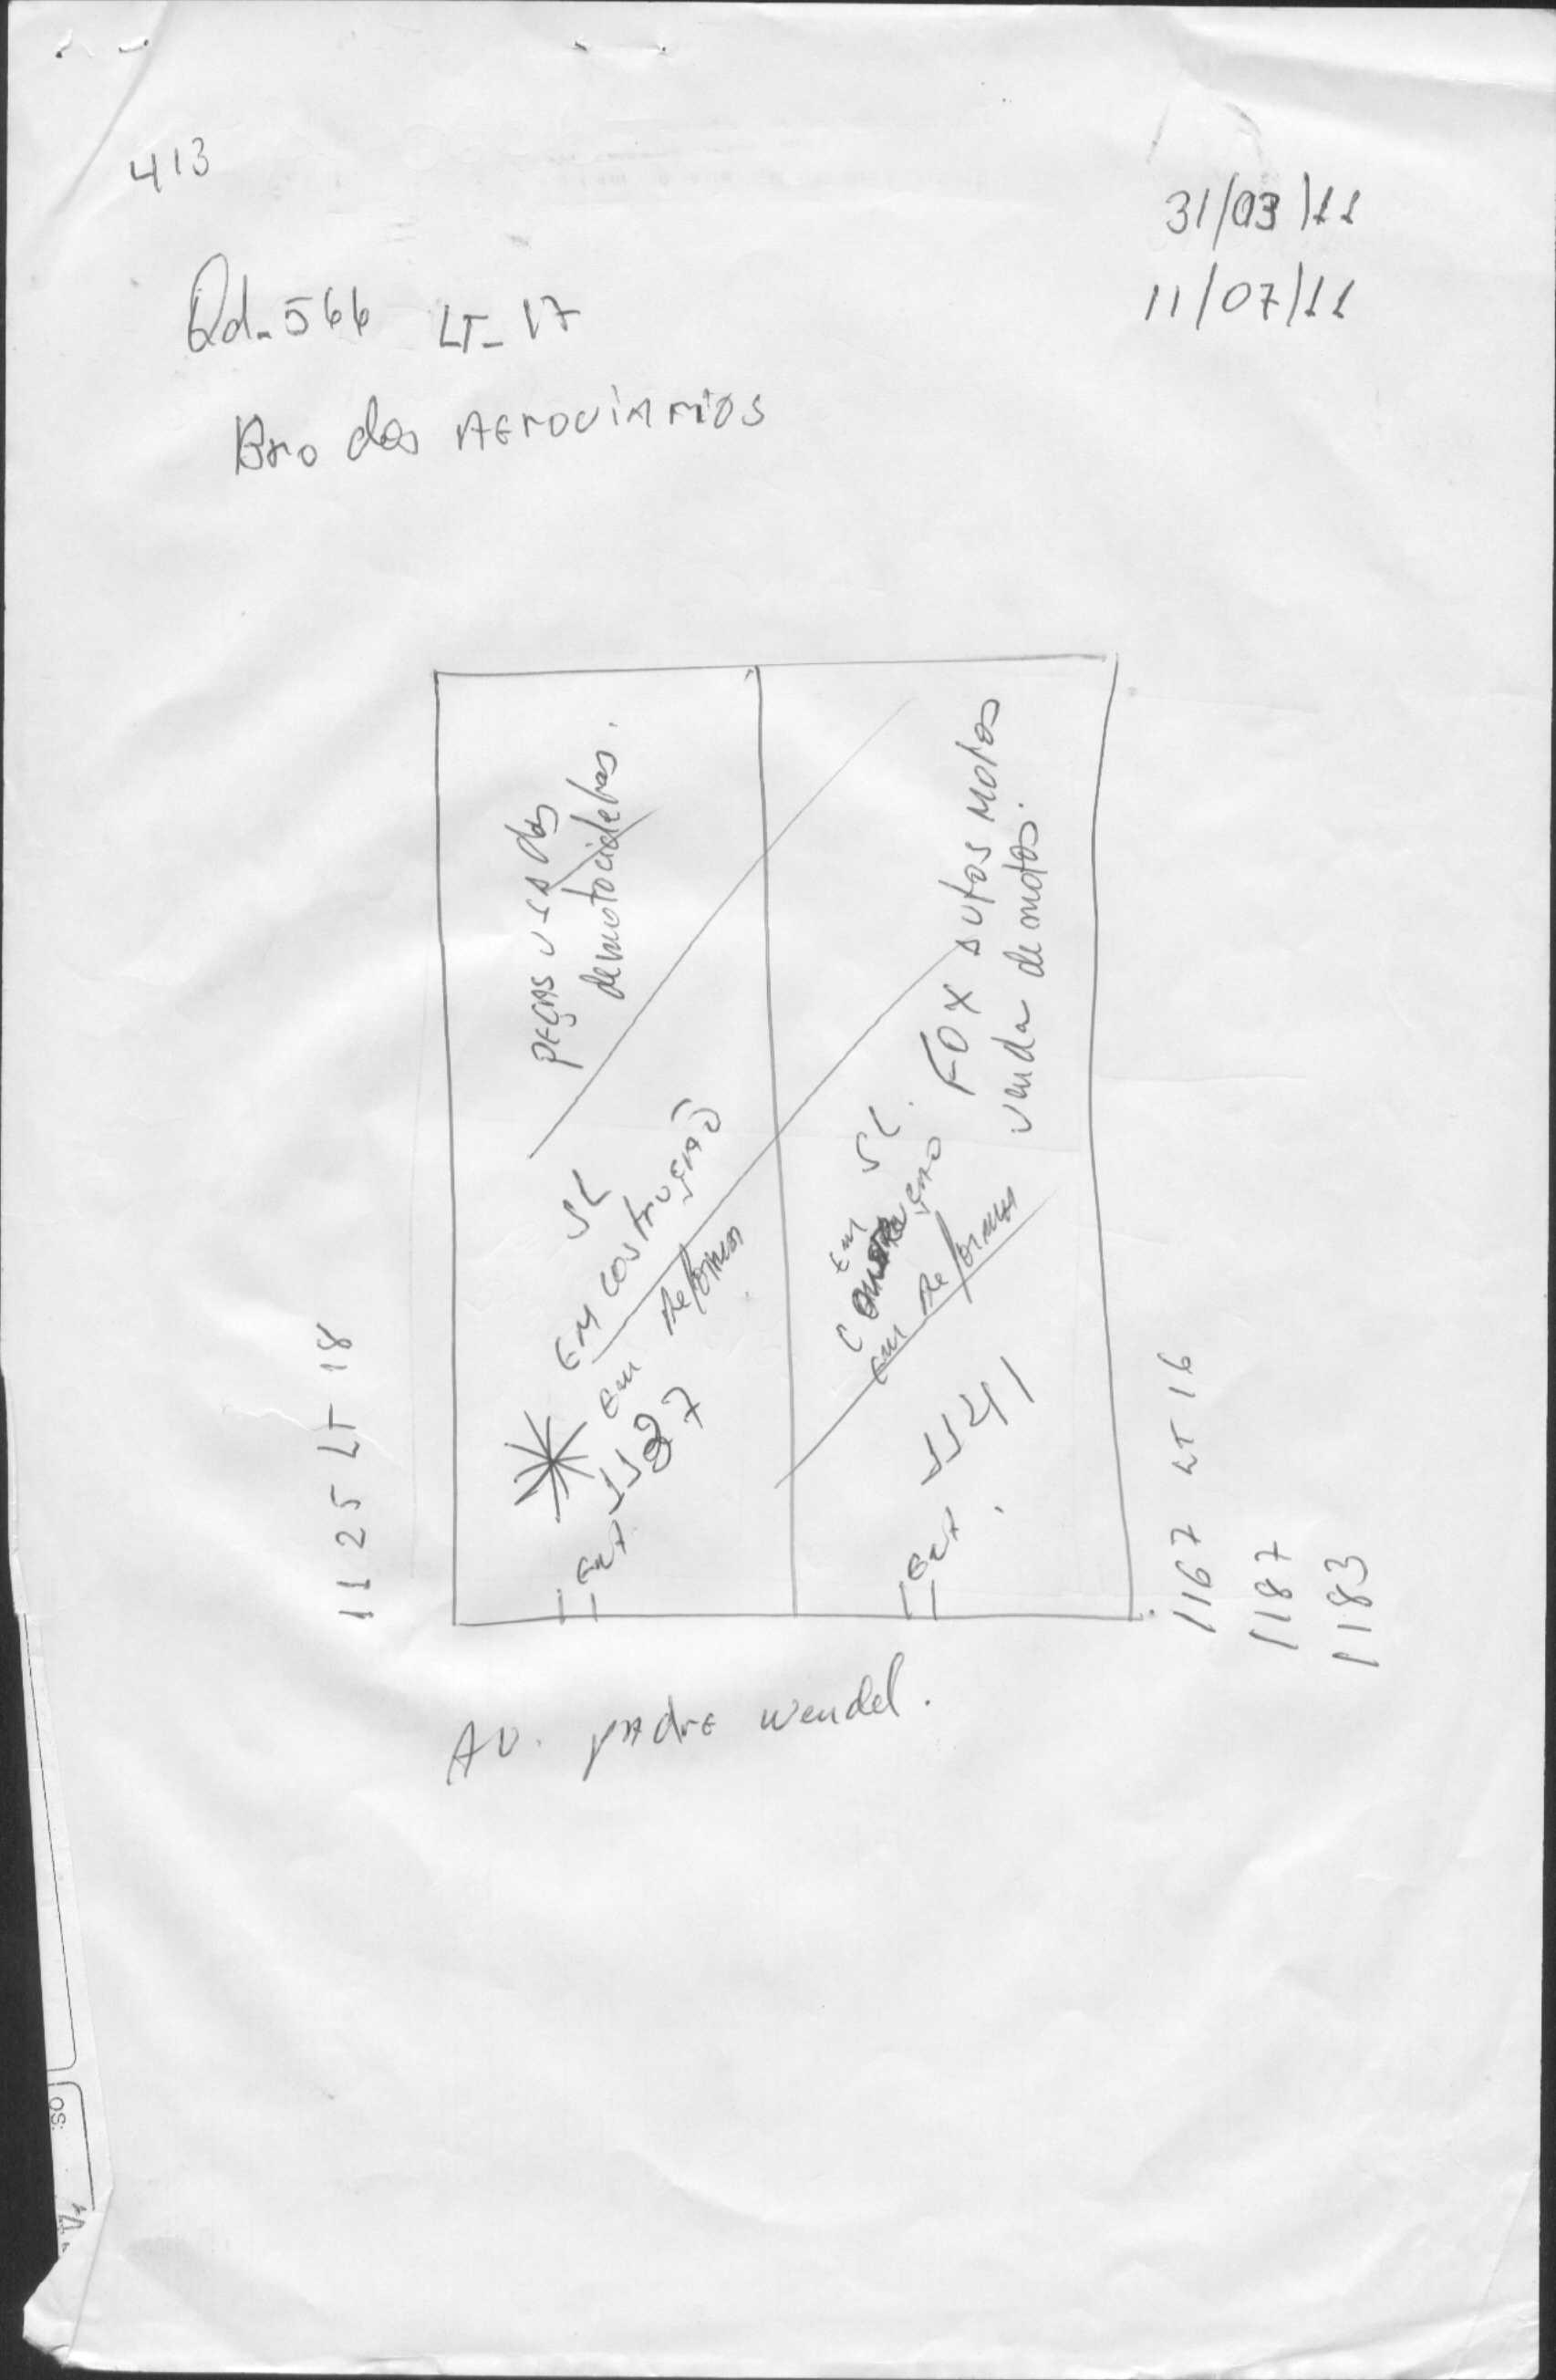 413
31/03/11
11/07/11
Qd-566 LT-17
Bro dos AEroviArios
PEÇAS USADAS
de motocicletas.
SL
Em costrução
Em Reforma
Ent 1137
FOX AUTOS MOTOS
venda de motos.
SL
Em
Em Reforma
Ent 1141
1125 LT 18
1167 LT 16
1187
1183
AV. PADrE Wendel.
OS: